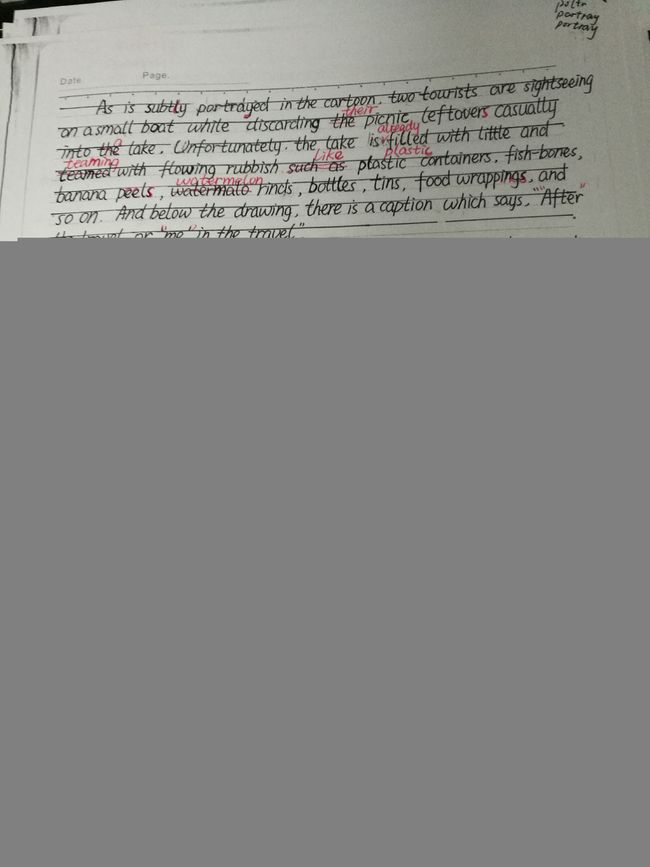 portray
portray
Date
Page.
As is subtly portrayed in the cartoon, two tourists are sightseeing
their
on a small boat while discarding the picnic leftovers casually
a already
into the lake. Unfortunately. the lake is filled with little and
teaming like plastic
teamed with flowing rubbish such as plastic containers, fish-bones,
watermelon
banana peels, watermato rinds, bottles, tins, food wrappings, and
so on. And below the drawing, there is a caption which says, "After
travel or "me" in the travel."